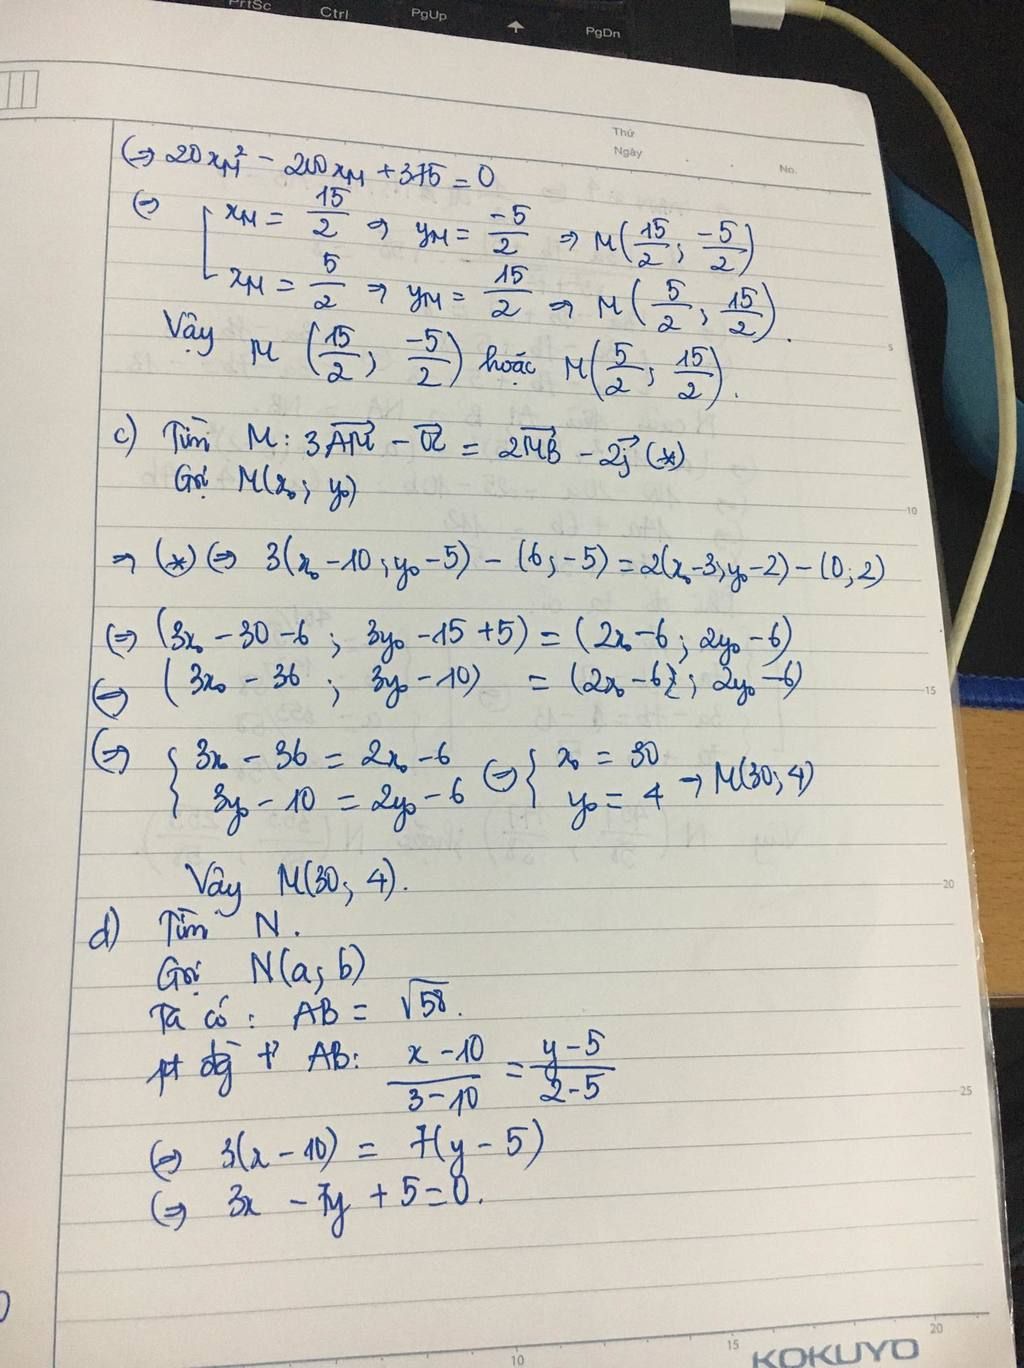 PrtSc Ctrl PgUp PgDn
Thứ
Ngày
No.
(=> 20x_M² - 200x_M + 375 = 0
(=> [ x_M = 15/2 => y_M = -5/2 => M(15/2; -5/2)
x_M = 5/2 => y_M = 15/2 => M(5/2; 15/2).
Vậy M (15/2; -5/2) hoặc M(5/2; 15/2).
5
c) Tìm M: 3AM→ - u→ = 2MB→ - 2j→ (*)
Gọi M(x₀; y₀)
10
=> (*) (=> 3(x₀-10; y₀-5) - (6; -5) = 2(x₀-3; y₀-2) - (0; 2)
(=> (3x₀ - 30 - 6; 3y₀ - 15 + 5) = (2x₀ - 6; 2y₀ - 6)
(=> (3x₀ - 36; 3y₀ - 10) = (2x₀ - 6; 2y₀ - 6)
15
(=> { 3x₀ - 36 = 2x₀ - 6 (=> { x₀ = 30
3y₀ - 10 = 2y₀ - 6 y₀ = 4 → M(30; 4)
Vậy M(30; 4).
20
d) Tìm N.
Gọi N(a; b)
Ta có: AB = √58.
pt đg t² AB: (x - 10)/(3 - 10) = (y - 5)/(2 - 5)
25
(=> 3(x - 10) = 7(y - 5)
(=> 3x - 7y + 5 = 0.
10 15 20
KOKUYO